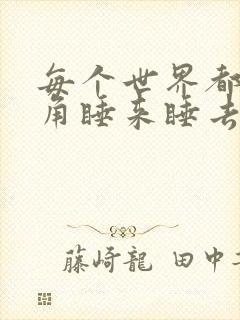 每个世界都
角睡来睡去
藤崎龍 田中